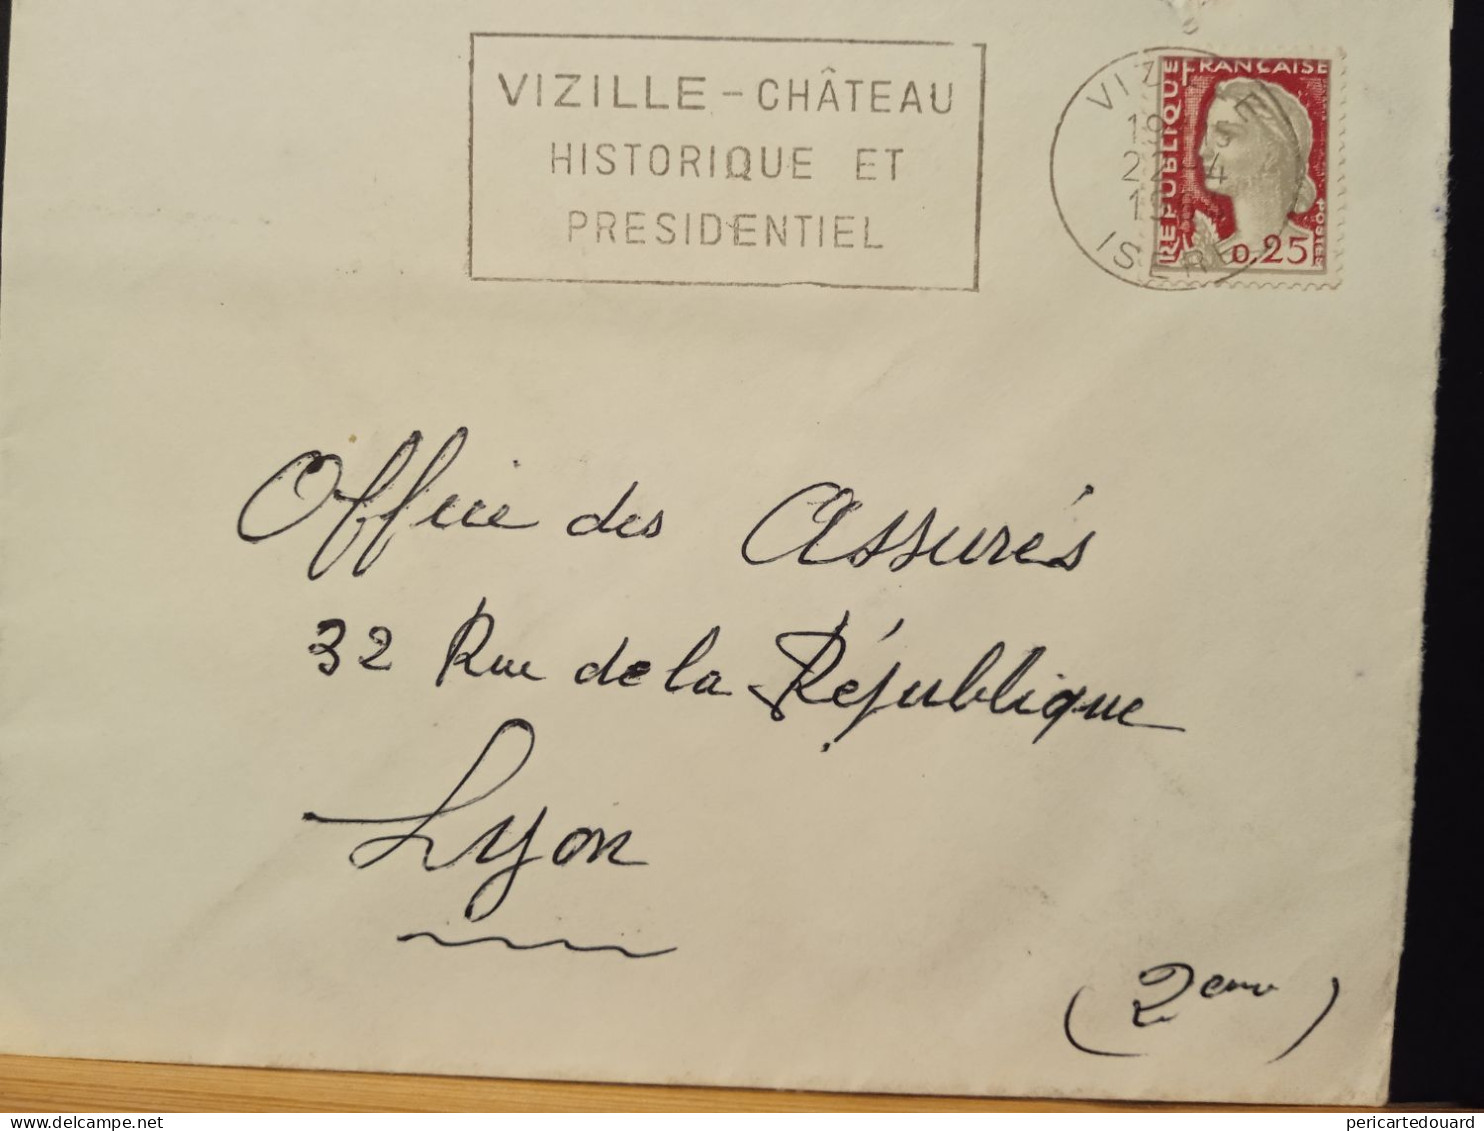 VIZILLE – CHÂTEAU
HISTORIQUE ET
PRESIDENTIEL
22-4
ISERE
REPUBLIQUE FRANÇAISE
POSTES
0,25F
Office des Assurés
32 Rue de la République
Lyon
(2eme)
pericartedouard